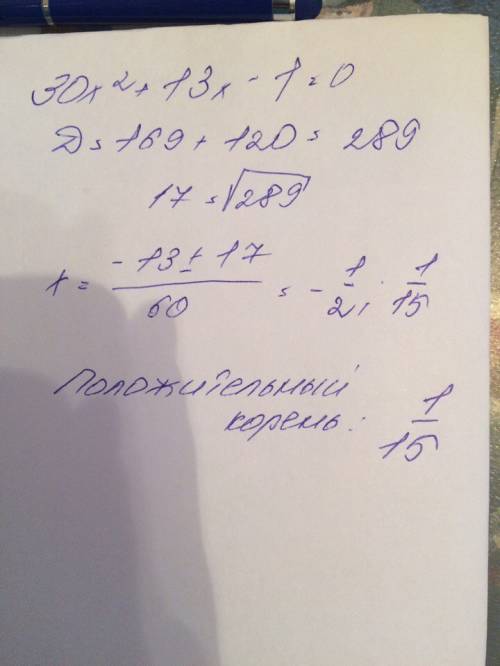 30x² + 13x - 1 = 0
D = 169 + 120 = 289
17 = √289
x = (-13 ± 17)/60 = -1/2; 1/15
Положительный
корень: 1/15